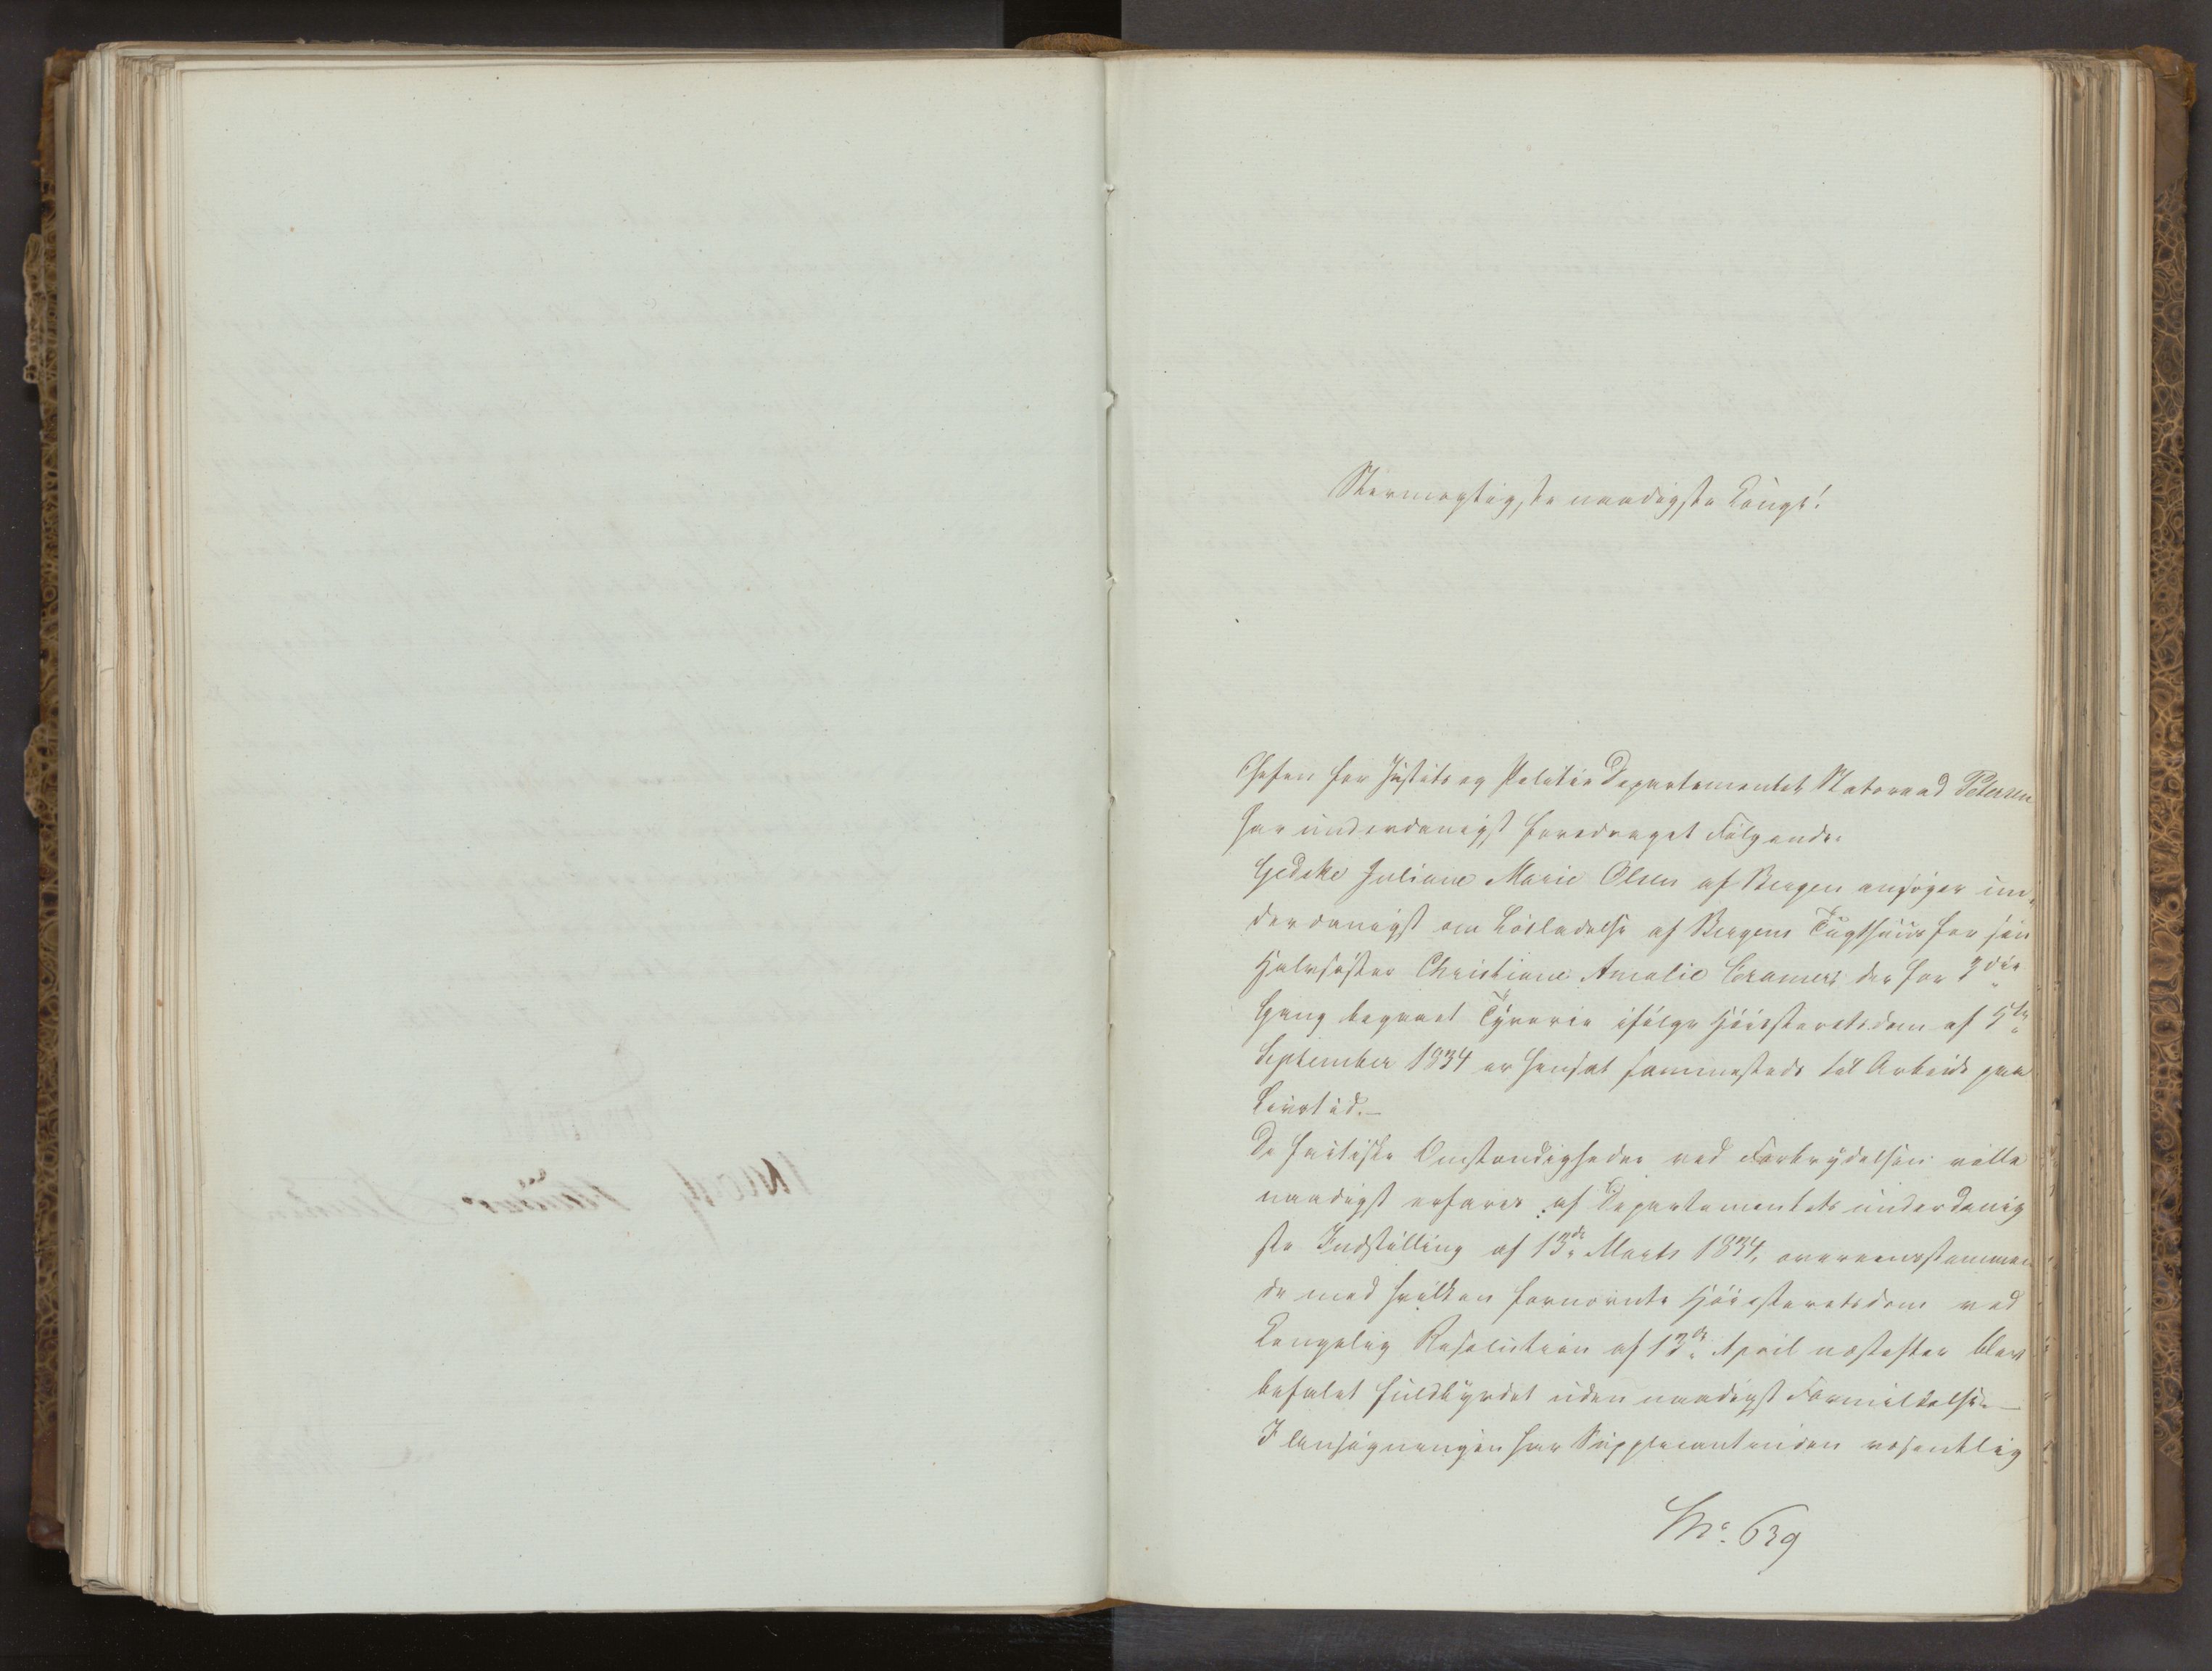 Stormægtigste naadigste Konge!
Chefen for Justits og Politie Departementet Statsraad Petersen
har underdanigst foredraget Følgende:
Gedske Juliane Marie Olsen af Bergen ansøger un,
derdanigst om Løsladelse af Bergens Tugthuus for sin
Halvsøster Christiane Amalie Cramers der for 3die
Gang begaaet Tyverie ifølge Høiesteretsdom af 5te
September 1834 er hensat sammesteds til Arbeide paa
Livstid.—
De factiske Omstændigheder ved Forbrydelsen ville
naadigst erfares af Departementets underdanig
ste Indstilling af 13de Marts 1834, overeensstemmen
de med hvilken fornævnte Høiesteretsdom ved
Kongelig Resolution af 13de April næstefter blev
befalet fuldbyrdet uden naadigst Formildelse.—
I Ansøgningen har Supplicantinden væsentlig
No. 639